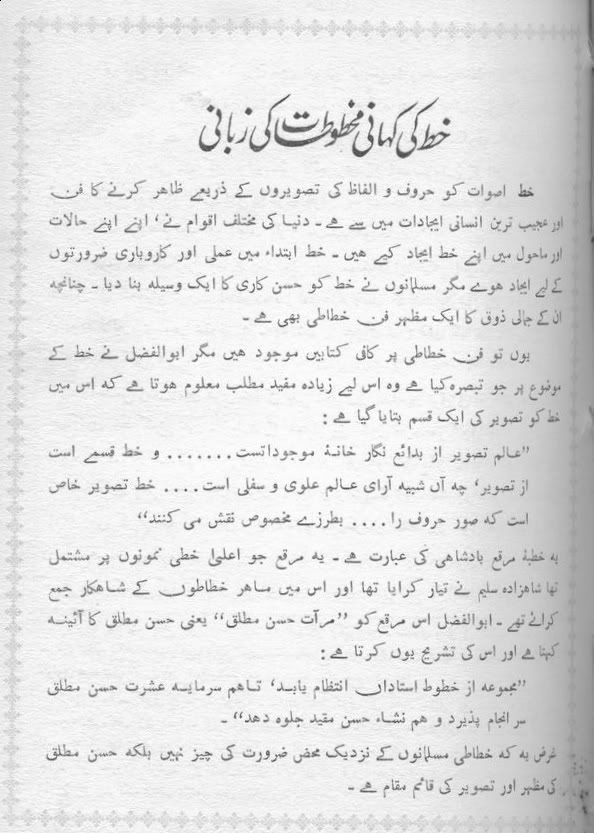 خط کی کہانی مخطوطات کی زبانی
خط اصوات کو حروف و الفاظ کی تصویروں کے ذریعے ظاهر کرنے کا فن
اور عجیب ترین انسانی ایجادات میں سے ہے ۔ دنیا کی مختلف اقوام نے ، اپنے اپنے حالات
اور ماحول میں اپنے خط ایجاد کیے هیں ۔ خط ابتداء میں عملی اور کاروباری ضرورتوں
کے لیے ایجاد هوے مگر مسلمانوں نے خط کو حسن کاری کا ایک وسیله بنا دیا ۔ چنانچه
ان کے جمالی ذوق کا ایک مظہر فن خطاطی بھی ہے ۔
یوں تو فن خطاطی پر کافی کتابیں موجود هیں مگر ابوالفضل نے خط کے
موضوع پر جو تبصره کیا ہے وه اس لیے زیاده مفید مطلب معلوم هوتا ہے که اس میں
خط کو تصویر کی ایک قسم بتایا گیا ہے :
”عالم تصویر از بدائع نگار خانهٔ موجوداتست . . . . . . . و خط قسمے است
از تصویر ، چه آں شبیه آرای عالم علوی و سفلی است . . . . خط تصویر خاص
است که صور حروف را . . . . بطرزے مخصوص نقش می کنند“
یه خطبهٔ مرقع بادشاهی کی عبارت ہے ۔ یه مرقع جو اعلیٰ خطی نمونوں پر مشتمل
تھا شاهزاده سلیم نے تیار کرایا تھا اور اس میں ماهر خطاطوں کے شاهکار جمع
کرائے تھے ۔ ابوالفضل اس مرقع کو ”مرآت حسن مطلق“ یعنی حسن مطلق کا آئینه
کہتا ہے اور اس کی تشریح یوں کرتا ہے :
”مجموعه از خطوط استاداں انتظام یابد ، تاهم سرمایه عشرت حسن مطلق
سر انجام پذیرد و هم نشاء حسن مقید جلوه دهد“ ۔
غرض یه که خطاطی مسلمانوں کے نزدیک محض ضرورت کی چیز نہیں بلکه حسن مطلق
کی مظہر اور تصویر کی قائم مقام ہے ۔